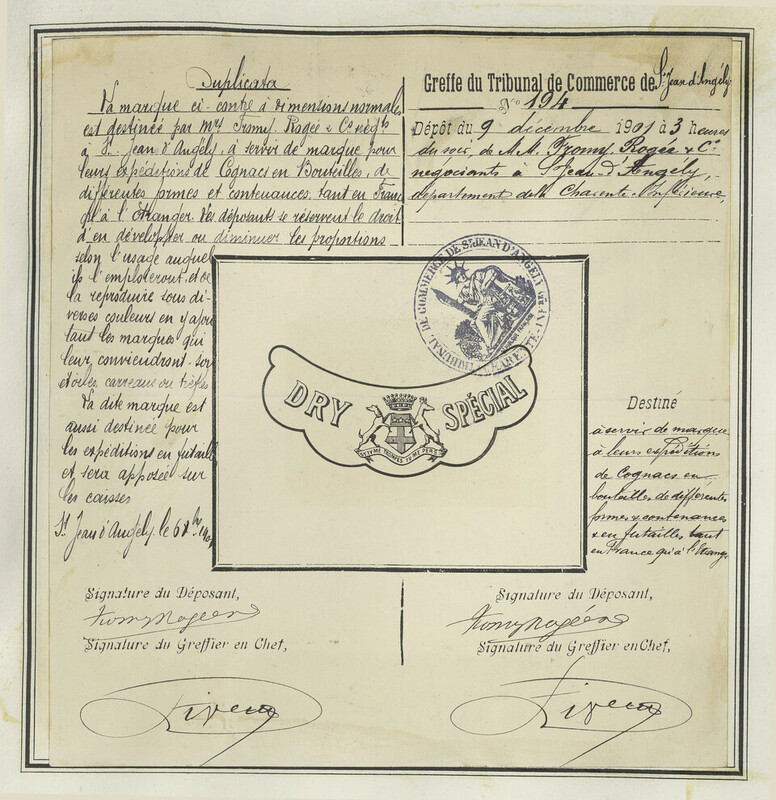 Duplicata
La marque ci-contre à dimensions normales
est destinée par Mrs Fromy, Rogée & Cie négts
à St Jean d'Angély, à servir de marque pour
leurs expéditions de Cognacs en Bouteilles, de
différentes formes et contenances, tant en France
qu'à l'étranger. Les déposants se réservent le droit
d'en développer ou diminuer les proportions
selon l'usage auquel
ils l'emploieront, et de
la reproduire sous di-
verses couleurs en y ajou
tant les marques qui
leur conviendront soit
étoiles, carreaux ou trèfles
La dite marque est
aussi destinée pour
les expéditions en futailles
et sera apposée sur
les caisses
St Jean d'Angély, le 6
Signature du Déposant,
Fromy Rogée
Signature du Greffier en Chef,
Greffe du Tribunal de Commerce de St Jean d'Angély
No 194
Dépôt du 9 décembre 1901 à 3 heures
du soir, de M.M. Fromy, Rogée & Cie
négociants à St Jean-d'Angély,
département de la Charente-Inférieure,
TRIBUNAL DE COMMERCE DE ST JEAN D'ANGELY
DRY SPÉCIAL
Destiné
à servir de marque
à leurs expéditions
de Cognacs en
bouteilles de différentes
formes & contenances
& en futailles tant
en France qu'à l'étranger
Signature du Déposant,
Fromy Rogée
Signature du Greffier en Chef,